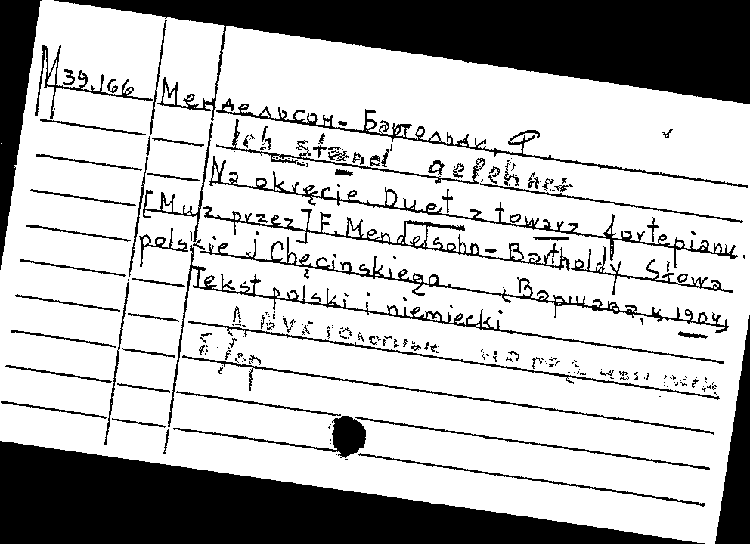 М 39.166 Мендельсон-Бартольди, Ф.
Ich stand gelehnet
Na okręcie. Duet z towarz fortepianu.
[Muz. przez] F. Mendelsohn-Bartholdy Słowa
polskie J Chęcinskiego. [Варшава, ц. 1904]
Tekst polski i niemiecki
Двухголосные